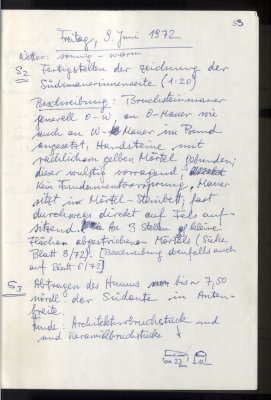 53
Freitag, 9. Juni 1972
Wetter: sonnig – warm
S2 Fertigstellen der Zeichnung der
Südmauerinnenseite (1:20)
Beschreibung: Bruchsteinmauer
generell O–W, an O-Mauer wie
auch an W-Mauer im Bund
angesetzt, Handsteine mit
reichlichem gelben Mörtel gebunden,
dieser wulstig vorragend,
kein Fundamentvorsprung, Mauer
sitzt im Mörtel-Steinbett, fast
durchwegs direkt auf Fels auf-
sitzend. An 3 Stellen kleine
Flächen abgestrichenen Mörtels (siehe
Blatt 8/72). [Beschreibung ebenfalls auch
auf Blatt 6/72]
S3 Abtragen des Humus bis ~ 7,50
nördl. der Südkante in
breite.
Funde: Architekturbruchstück und
und Keramikbruchstücke